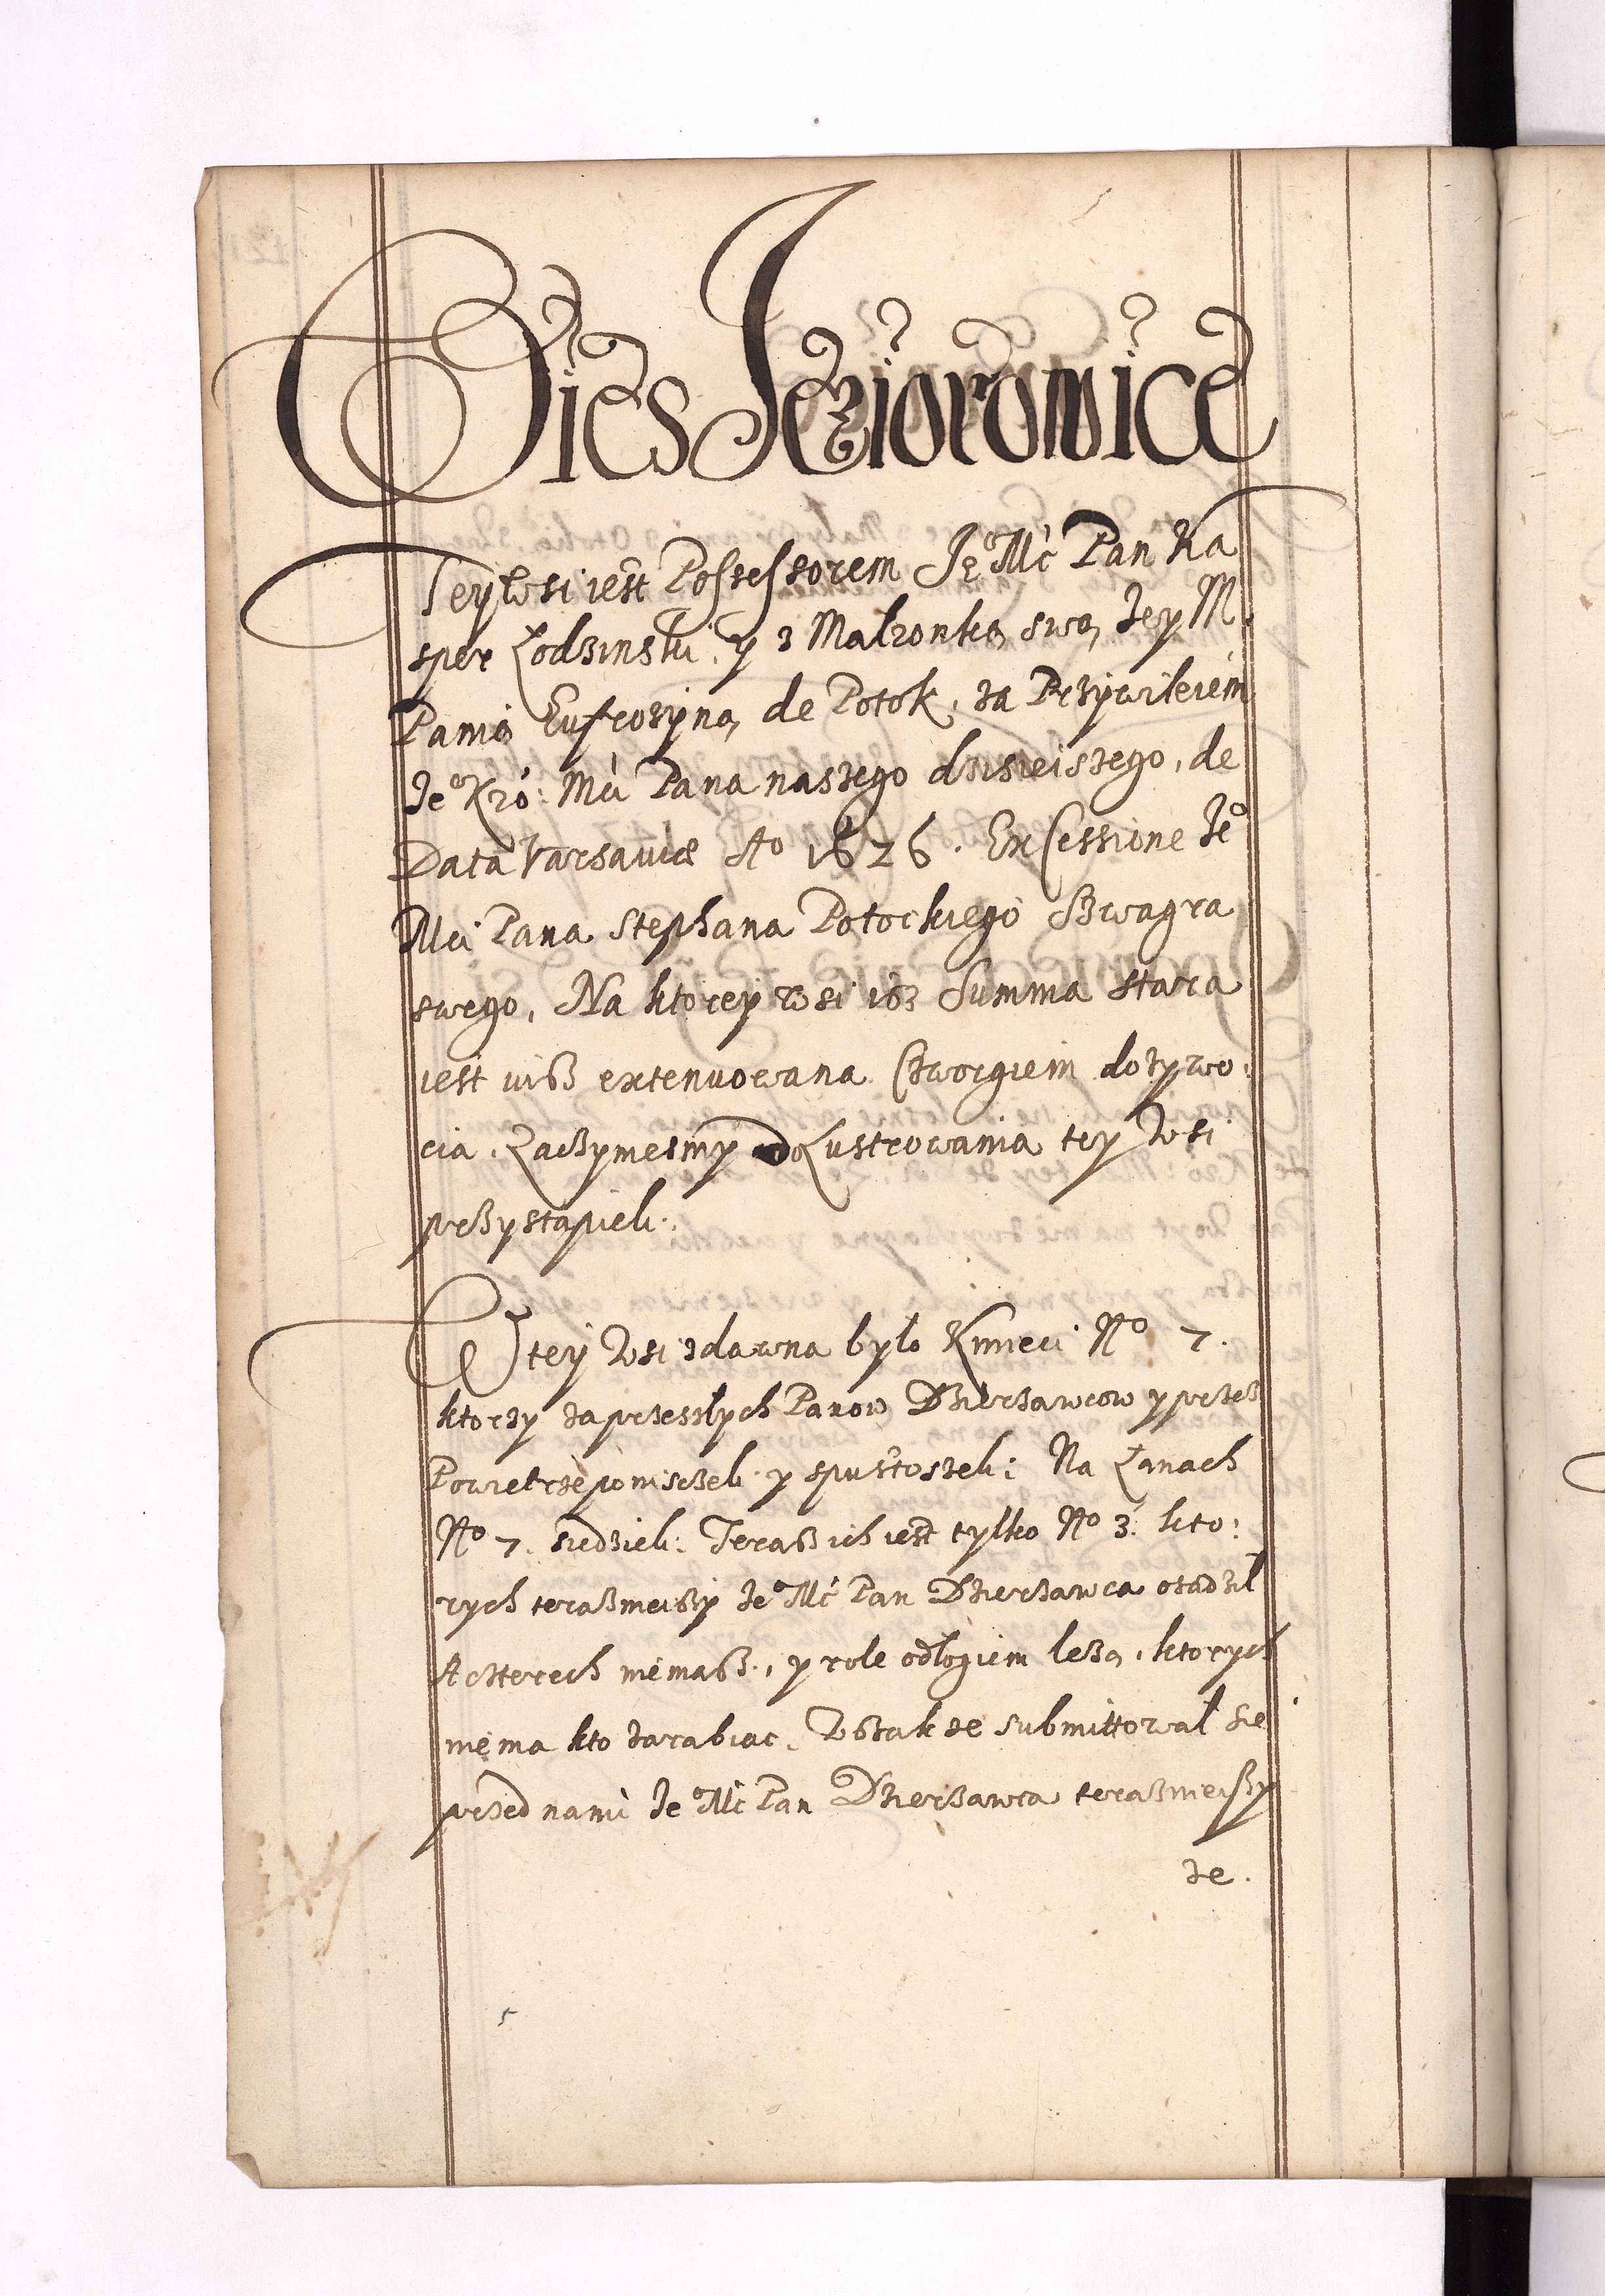 Wies Jezioromice
Tey wsi iest Possessorem Je° Mć Pan Ka
sper Łodzinski. y z Małzonką swą Jey M.
Panią Eufrozyną de Potok, za Przywileiem
Je° Kró: Mći Pana naszego dzisieiszego, de
Data Varsaviæ A° 1626. Ex Cessione Je°
Mći Pana Stephana Potockiego Szwagra
swego, Na ktorey wsi isz Summa stara
iest iusz extenuowana Czworgiem dozywo:
cia. Zaczymesmy do Lustrowania tey Wsi
przystąpieli.
W tey Wsi zdawna bylo Kmieci N° 7.
ktorzy za przesslych Panow Dzierzawcow y przesz
Powietrze poniszczeli y spustoszeli: Na Łanach
N° 7. siedzieli: Terasz ich iest tylko N° 3. kto:
rych teraznieiszy Je° Mć Pan Dzierzawca osadził
A czterech niemasz, y role odłogiem lezą, ktorych
niema kto zarabiac. Wszakze submittował sie
przed nami Je° Mć Pan Dzierzawca teraznieiszy
ze.